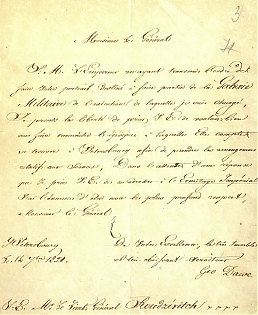 3
Monsieur le Général
S. M. l'Empereur m'ayant transmis l'ordre de
faire votre portrait, destiné à faire partie de la Galerie
Militaire de l'exécution de laquelle je suis chargé,
Je prends la liberté de prier V. E. de vouloir bien
me faire connaître l'époque à laquelle Elle compte
se trouver à Pétersbourg afin de prendre les arrangemens
relatifs aux séances. Dans l'attente d'une réponse
que je prie V. E. de m'adresser à l'Ermitage Impérial
J'ai l'honneur d'être avec le plus profond respect,
Monsieur le Général
St Pétersbourg
De Votre Excellence, le très humble
Le 14 7bre 1821.
et très obéissant Serviteur
Geo Dawe
S. E. Mr Le Général